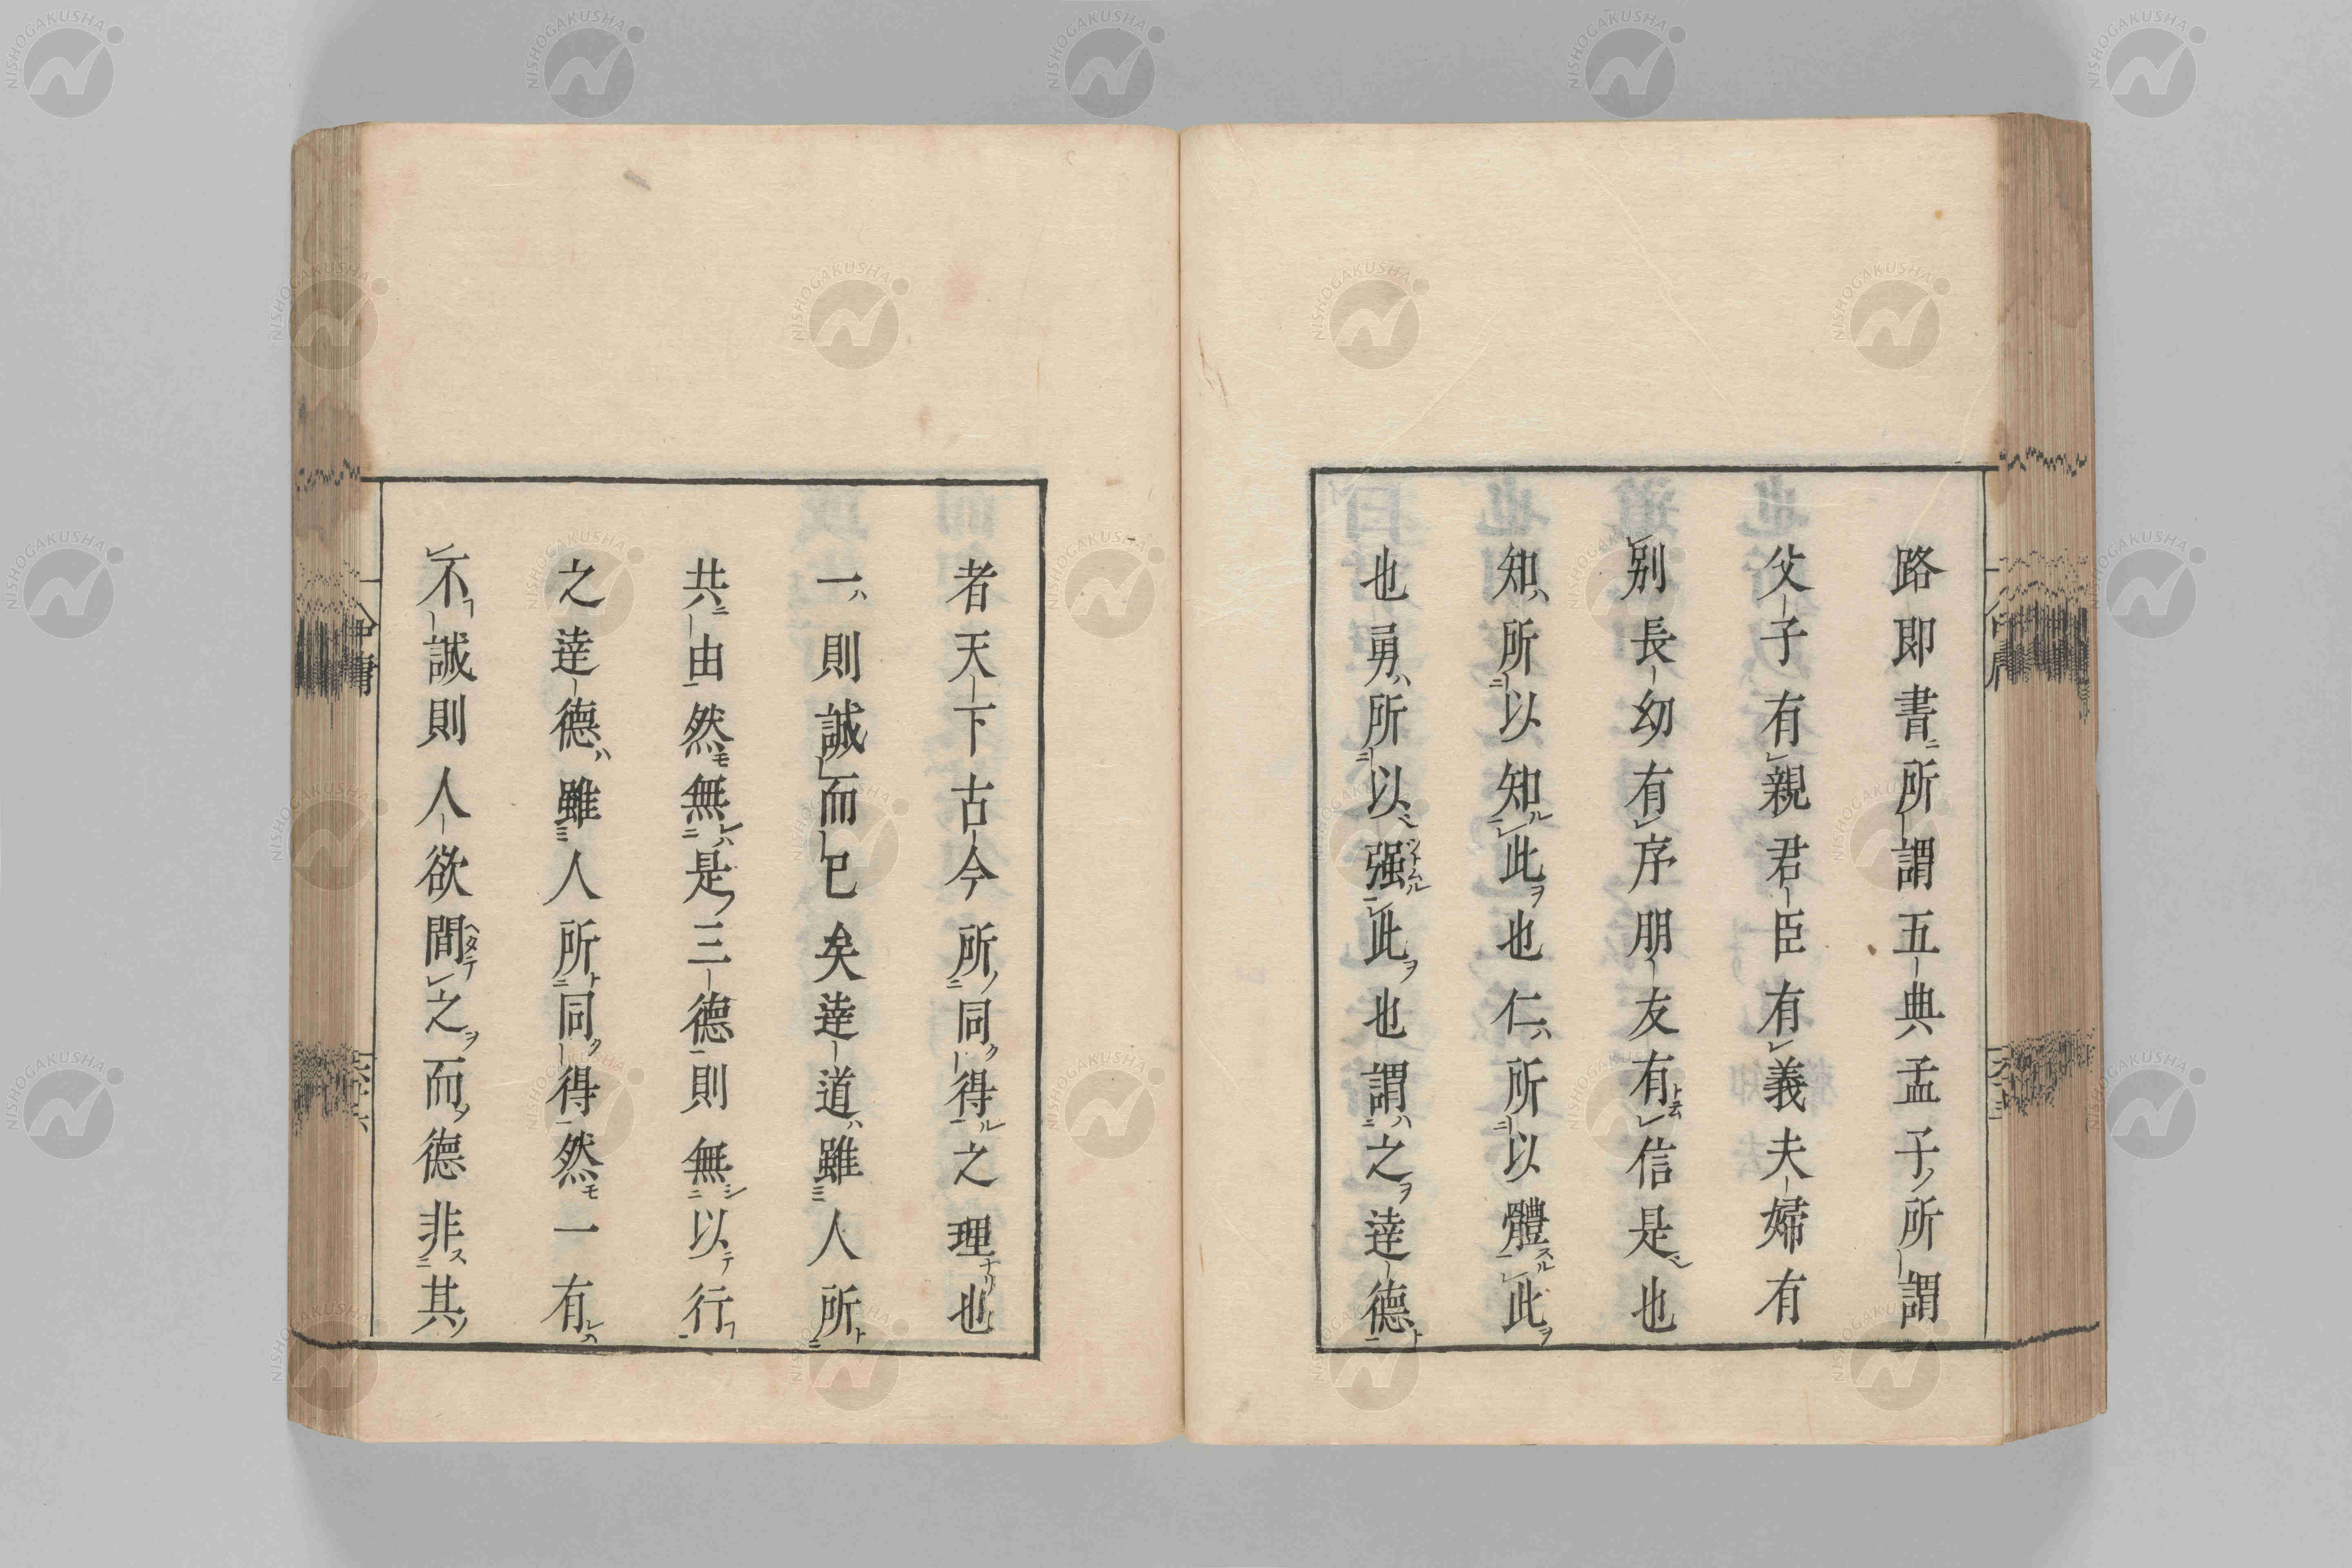 路即書所謂五典孟子所謂
父子有親君臣有義夫婦有
別長幼有序朋友有信是也
知所以知此也仁所以體此
也勇所以强此也謂之達德
者天下古今所同得之理也
一則誠而已矣達道雖人所
共由然無是三德則無以行
之達德雖人所同得然一有
不誠則人欲間之而德非其
NISHOGAKUSHA